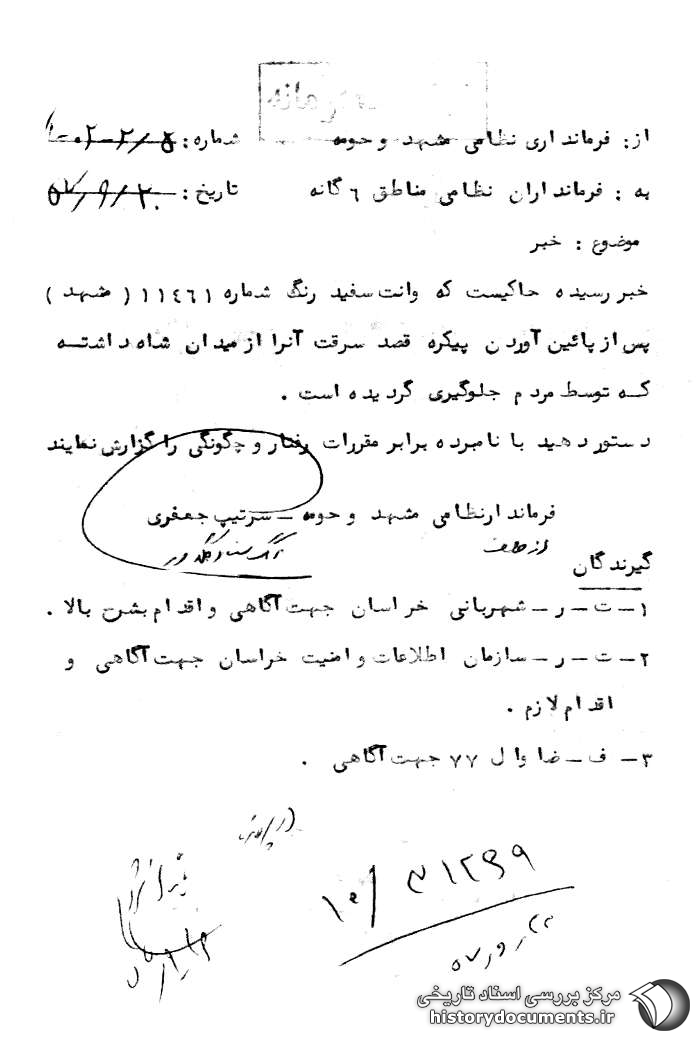 محرمانه
از: فرمانداری نظامی مشهد و حومه شماره: ۵/۲-۰۲-
به : فرمانداران نظامی مناطق ۶ گانه تاریخ: ۵۷/۹/۲۰
موضوع : خبر
خبر رسیده حاکیست که وانت سفید رنگ شماره ۱۱٤٦۱ ( مشهد )
پس از پائین آوردن پیکره قصد سرقت آنرا از میدان شاه داشتـه
کـه توسط مردم جلوگیری گردیده است .
دستور دهید با نامبرده برابر مقررات رفتار و چگونگی را گزارش نمایند
فرماندارنظامی مشهد و حومه - سرتیپ جعفری
از طرف
گیرندگان
۱- ت - ر - شهربانی خراسان جهت آگاهی و اقدام بشرح بالا .
۲- ت - ر - سازمان اطلاعات و امنیت خراسان جهت آگاهی و
اقدام لازم .
۳- ف - ضاوال ۷۷ جهت آگاهی .
مرکز بررسی اسناد تاریخی
historydocuments.ir